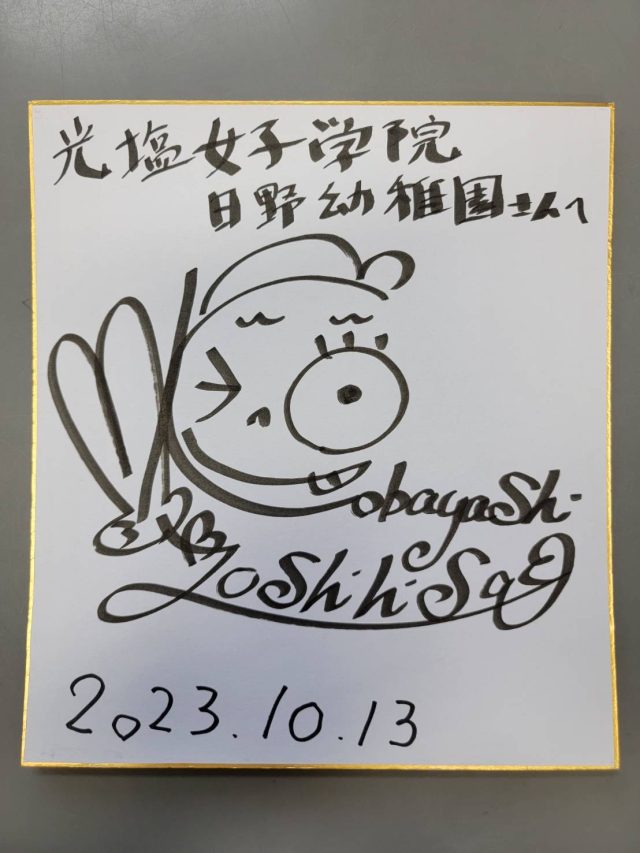 光塩女子学院
日野幼稚園さんへ
Kobayashi
Yoshihisa
2023.10.13